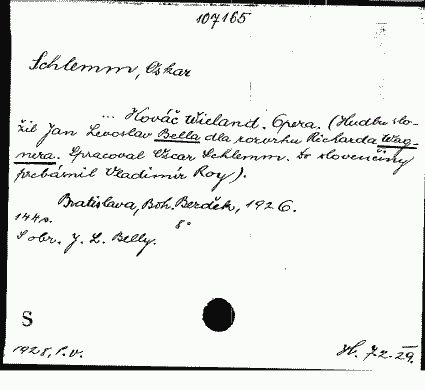 107165
Schlemm, Oskar
... Kováč Wieland. Opera. (Hudbu slo-
žil Ján Levoslav Bella dla rozvrhu Richarda Wag-
nera. Spracoval Oscar Schlemm. Do slovenčiny
prebásnil Vladimír Roy).
Bratislava, Boh. Berděk, 1926.
144 s. 8°
S obr. J. L. Belly.
S
1928, P.v. H. 7.2.29.